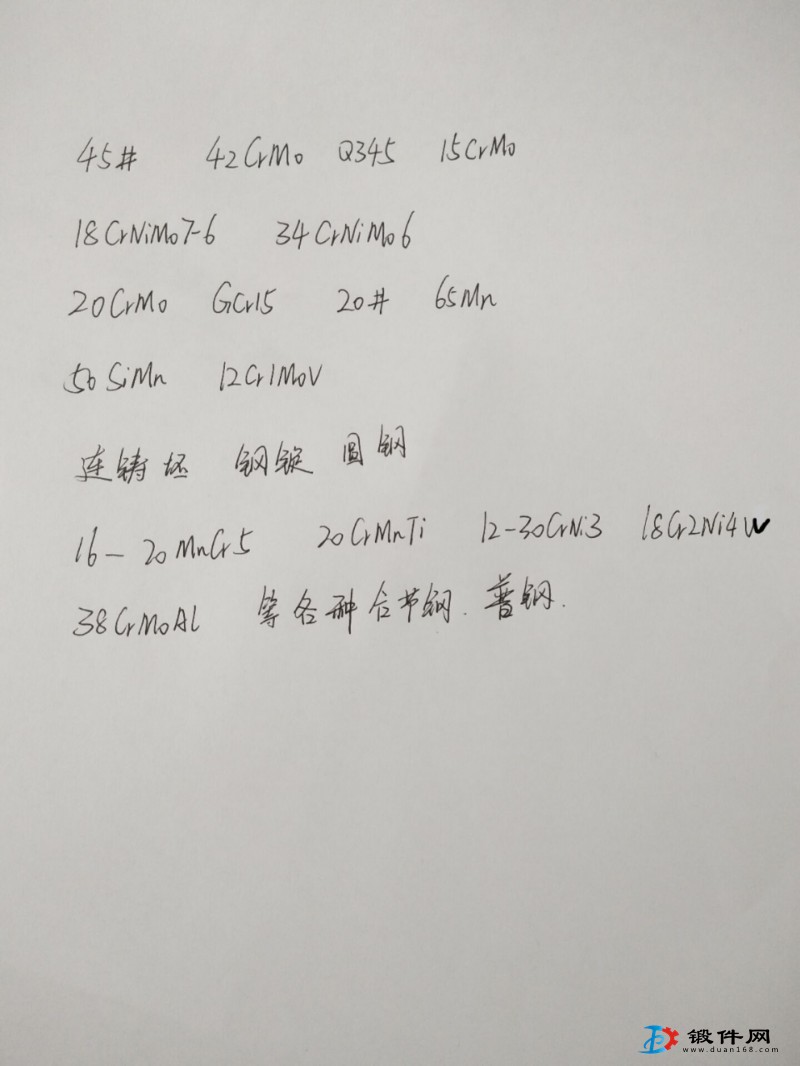 45# 42CrMo Q345 15CrMo
18CrNiMo7-6 34CrNiMo6
20CrMo GCr15 20# 65Mn
50SiMn 12Cr1MoV
连铸坯 钢锭 圆钢
16-20MnCr5 20CrMnTi 12-30CrNi3 18Cr2Ni4W
38CrMoAl 等各种合节钢.普钢.
锻件网
www.duan168.com